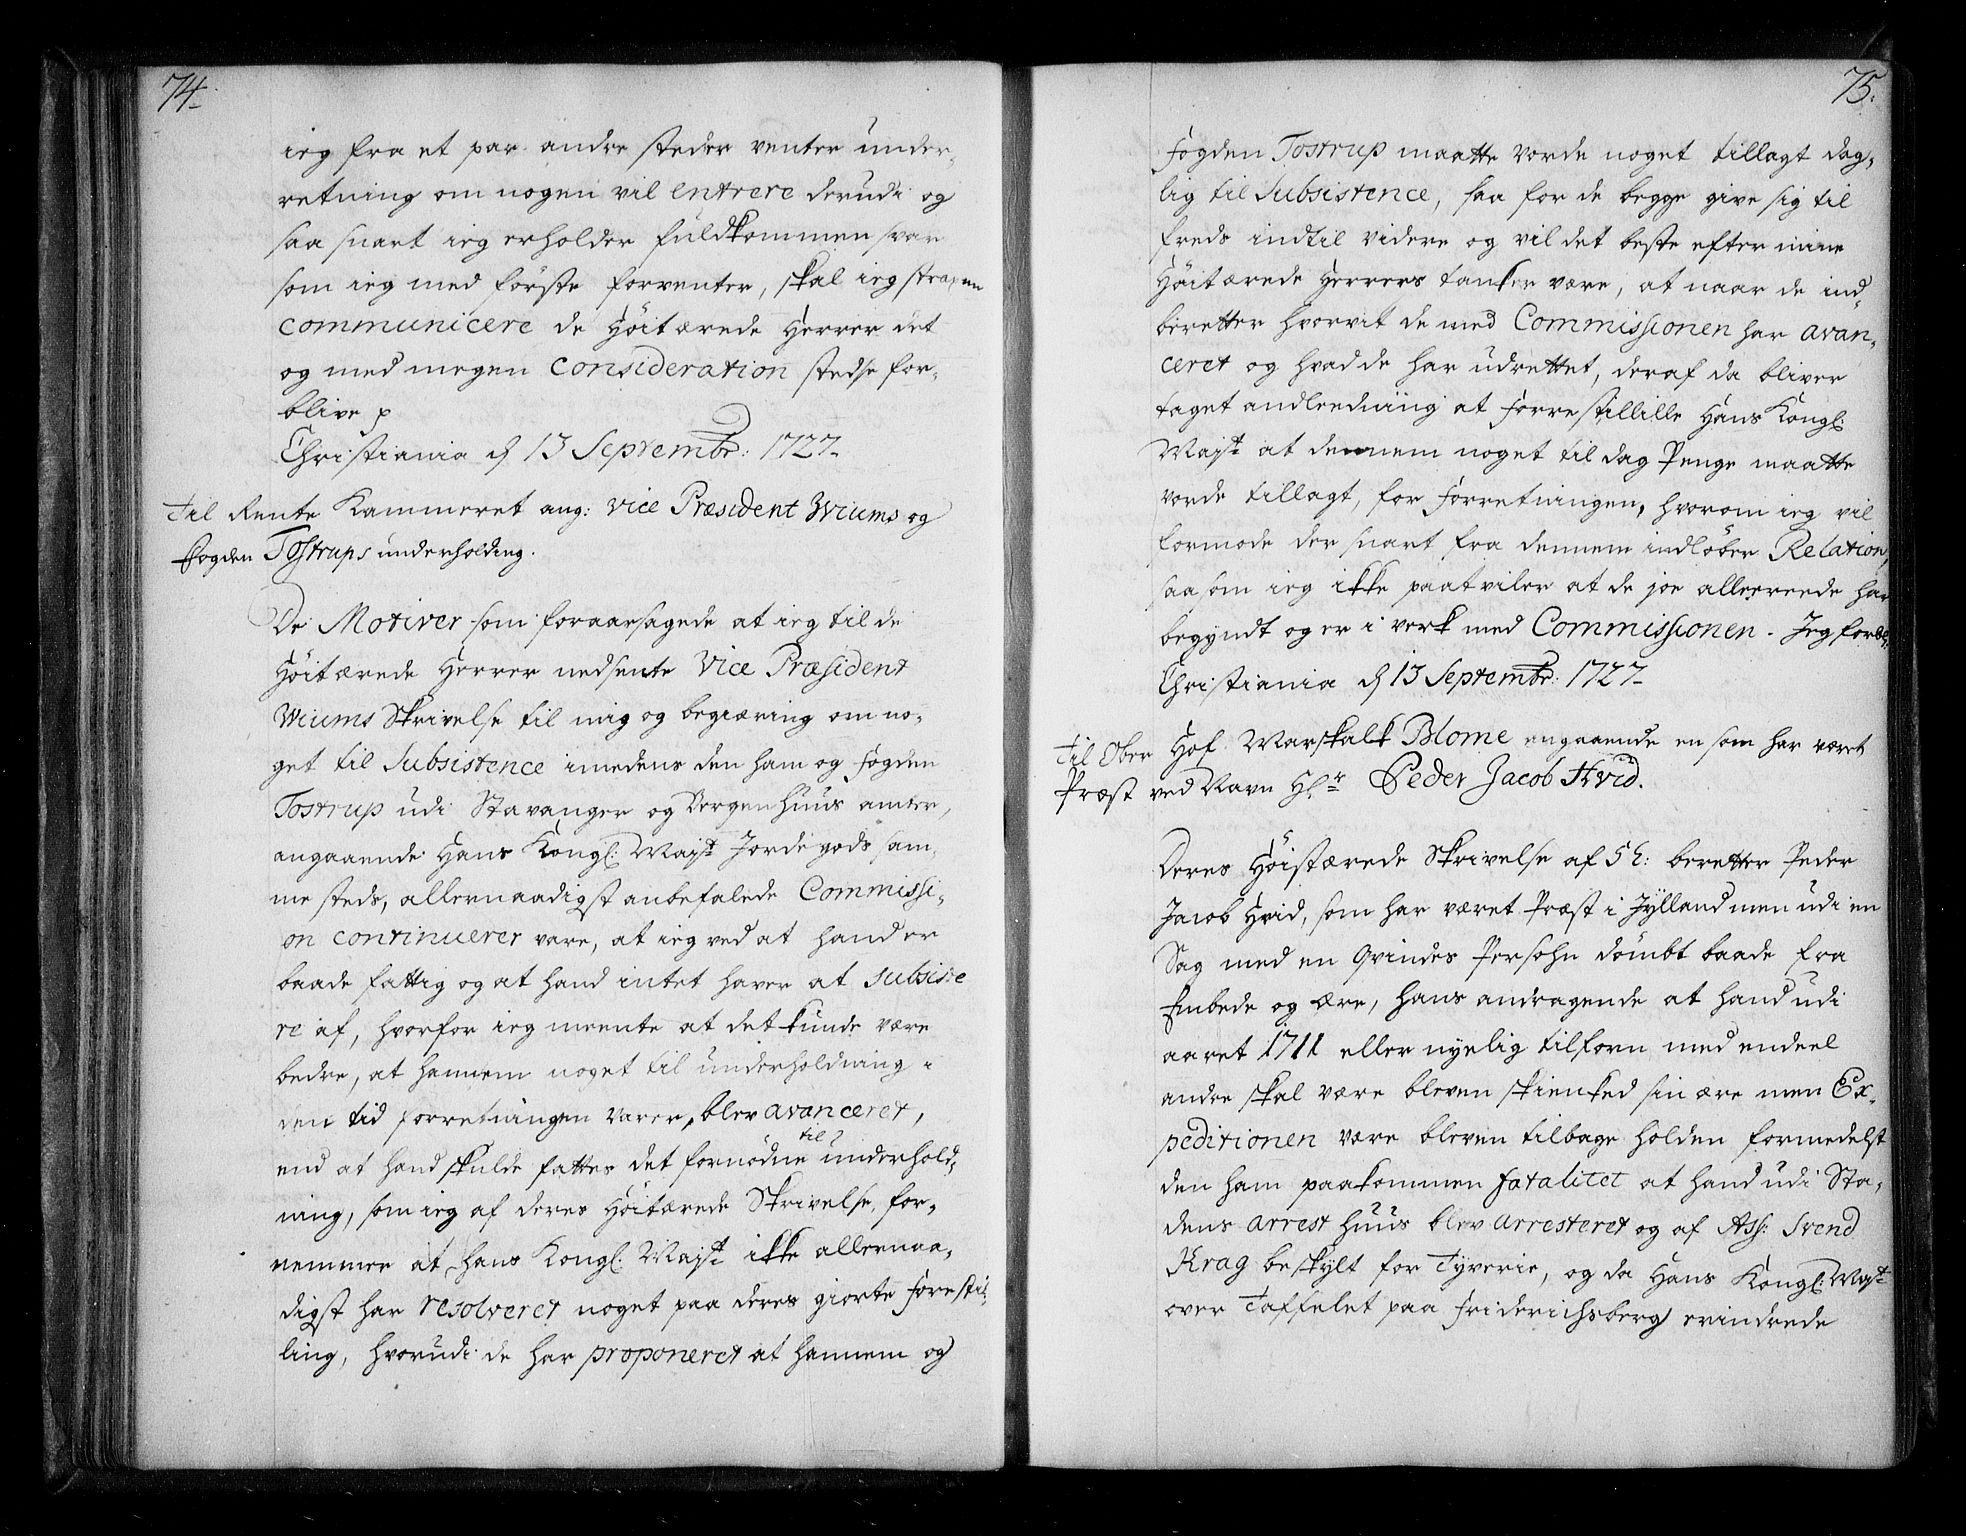 74.
ieg fra et par andre steder venter under-
retning om nogen vil entrere derudi og
saa snart ieg erholder fuldkommen svar
som ieg med første forventer, skal ieg straxen
communicere de Høitærede Herrer det
og med megen consideration stedse for-
blive p
Christiania d 13 Septembr: 1727.
Til Rente Kammeret ang: Vice Præsident Wiums og
Fogden Tostrups underholding.
De Motiver som foraarsagede at ieg til de
Høitærede Herrer nedsente Vice Præsident
Wiums Skrivelse til mig og begiæring om no-
get til Subsistence imedens den ham og Fogden
Tostrup udi Stavanger og Bergenhuus amter,
angaaende Hans Kongl: Majst Jordegods sam-
me steds, allernaadigst anbefalede Commissi-
on continuerer vare, at ieg ved at hand er
baade fattig og at hand intet haver at subsiste
re af, hvorfor ieg meente at det kunde være
bedre, at hannem noget til underholdning i
den tid forretningen varer, blev avanceret,
end at hand skulde fattes det fornødne til underhold-
ning, som ieg af deres Høitærede Skrivelse, for-
nemmer at Hans Kongl: Majst ikke allernaa-
digst har resolveret noget paa deres giorte Forestil-
ling, hvorudi de har proponeret at hannem og
75.
Fogden Tostrup maatte vorde noget tillagt dag-
lig til Subsistence, saa for de begge give sig til
freds indtil videre og vil det beste efter mine
Høitærede Herrers tanker være, at naar de ind-
beretter hvorvit de med Commissionen har avan-
ceret og hvad de har udrettet, deraf da bliver
taget andleedning at forrestillille Hans Kongl:
Majst at dennem noget til dag Penge maatte
vorde tillagt, for Forretningen, hvorom ieg vil
formode der snart fra dennem indløber Relation,
saasom ieg ikke paatviler at de joe allereede har
begyndt og er i verk med Commissionen. Jeg forbl:
Christiania d 13 Septembr: 1727.
Til Ober Hof Marskalk Blome angaaende en som har været
Præst ved Navn Hr Peder Jacob Hvid.
Deres Høistærede Skrivelse af 5t: beretter Peder
Jacob Hvid, som har været Præst i Jylland men udi en
Sag med en qvindes Persohn dømbt baade fra
Embede og ære, hans andragende at hand udi
aaret 1711 eller nyelig tilforn med endeel
andre skal være bleven skienked sin ære men Ex-
peditionen være bleven tilbage holden formedelst
den ham paakommen fatalitet at hand udi Sta-
dens arrest huus blev arresteret og af Ass: Svend
Krag beskylt for Tyverie, og da Hans Kongl: Mayst
over Taffelet paa Friderichsberg erindrede